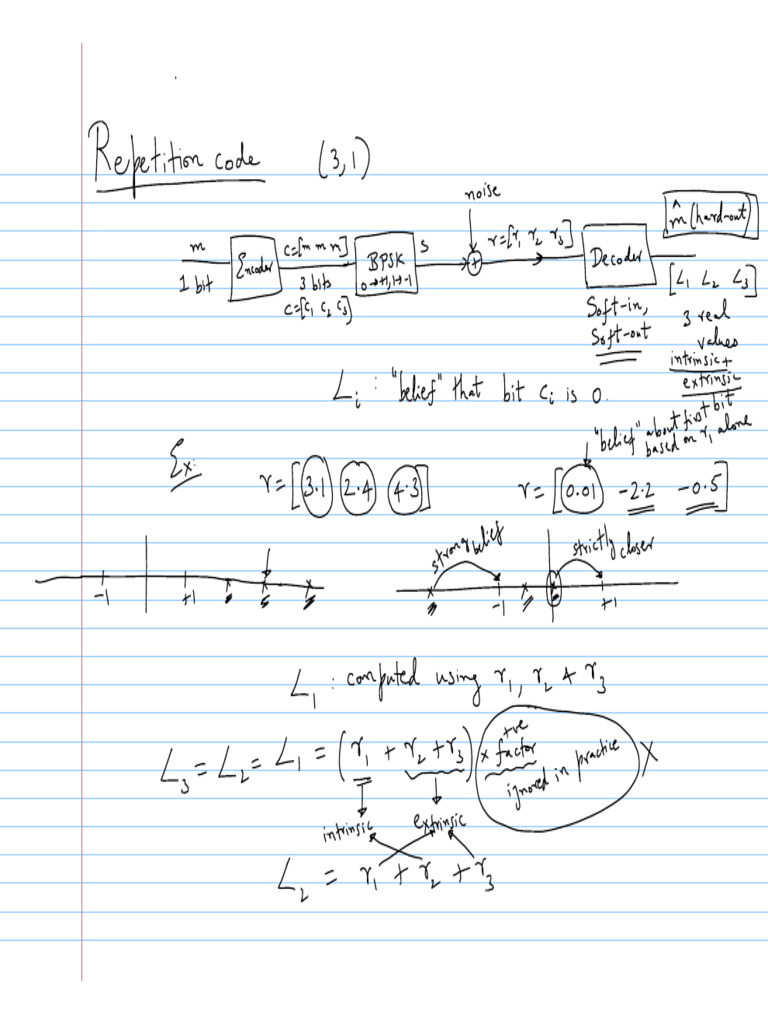 Repetition code (3,1)
noise
m̂ (hard-out)
m
1 bit
Encoder
c=[m m m]
3 bits
c=[c₁ c₂ c₃]
BPSK
0→+1, 1→-1
s
+
r=[r₁ r₂ r₃]
Decoder
Soft-in,
Soft-out
[L₁ L₂ L₃]
3 real
values
intrinsic+
extrinsic
Lᵢ : "belief" that bit cᵢ is 0.
"belief" about first bit
based on r₁ alone
Ex:
r=[3.1 2.4 4.3]
r=[0.01 -2.2 -0.5]
strong belief
strictly closer
-1 +1
-1 +1
L₁ : computed using r₁, r₂ & r₃
L₃ = L₂ = L₁ = (r₁ + r₂ + r₃) × +ve factor
ignored in practice
×
intrinsic extrinsic
L₂ = r₁ + r₂ + r₃